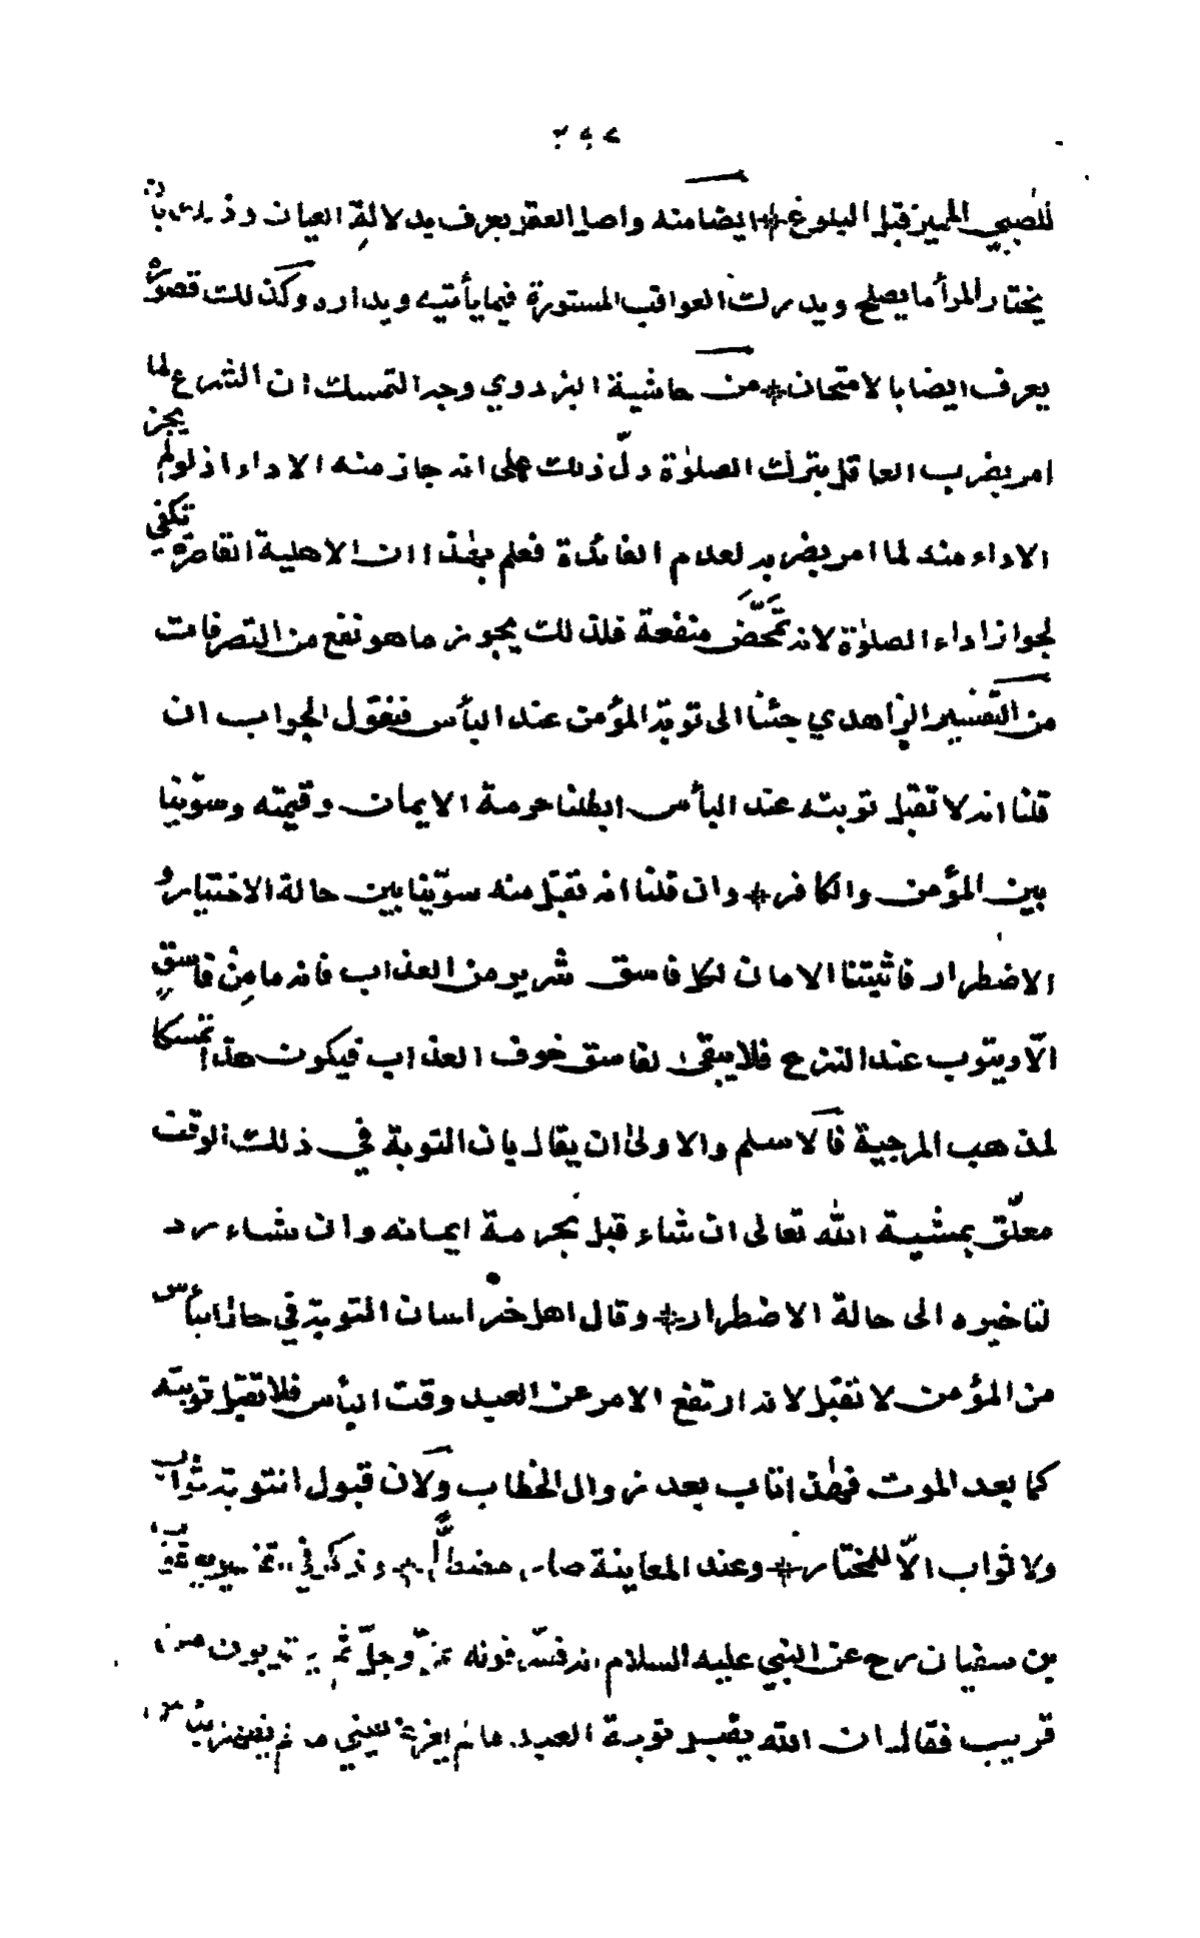 للصبي المميز قبل البلوغ * ايضا منه واصل العقل يعرف بدلالة العيان وذلك بان
يختار المرأ ما يصلح ويدرك العواقب المستورة فيما يأتيه ويذره وكذلك قصوره
يعرف ايضا بالامتحان * من حاشية البزدوي وجه التمسك ان الشرع لما
امر بضرب العاقل بترك الصلوٰة دلّ ذلك على انه جاز منه الاداء اذ لو لم يجز
الاداء منه لما امر بضربه لعدم الفائدة فعلم بهٰذا ان الاهلية القاصرة تكفي
لجواز اداء الصلوٰة لانه تَمَحَّضَ منفعة فلذلك يجوز ما هو نفع من التصرفات
من التفسير الزاهدي جئنا الى توبة المؤمن عند البأس فنقول الجواب ان
قلنا انه لا تقبل توبته عند البأس ابطلنا حرمة الايمان وقيمته وسوّينا
بين المؤمن والكافر * وان قلنا انه تقبل منه سوّينا بين حالة الاختيار و
الاضطرار فاثبتنا الامان لكل فاسق شرير من العذاب فانه ما مِنْ فاسقٍ
الّا ويتوب عند النزع فلا يبقى لفاسق خوف العذاب فيكون هذا تمسكا
لمذهب المرجية فالاسلم والاولى ان يقال بان التوبة في ذلك الوقت
معلّق بمشية الله تعالى ان شاء قبل بحرمة ايمانه وان شاء رد
لتاخيره الى حالة الاضطرار * وقال اهل خراسان التوبة في حال البأس
من المؤمن لا تقبل لانه ارتفع الامر عن العبد وقت البأس فلا تقبل توبته
كما بعد الموت فهٰذا تاب بعد زوال الخطاب ولان قبول التوبة ثواب
ولا ثواب الّا للمختار * وعند المعاينة صار مضطرًّا * وذكر في تفسير يعقوب
بن سفيان رح عن النبي عليه السلام انه فسّر قوله عزّ وجلّ ثم يتوبون من
قريب فقال ان الله يقبل توبة العبد ما لم يغرغر يعني ما لم